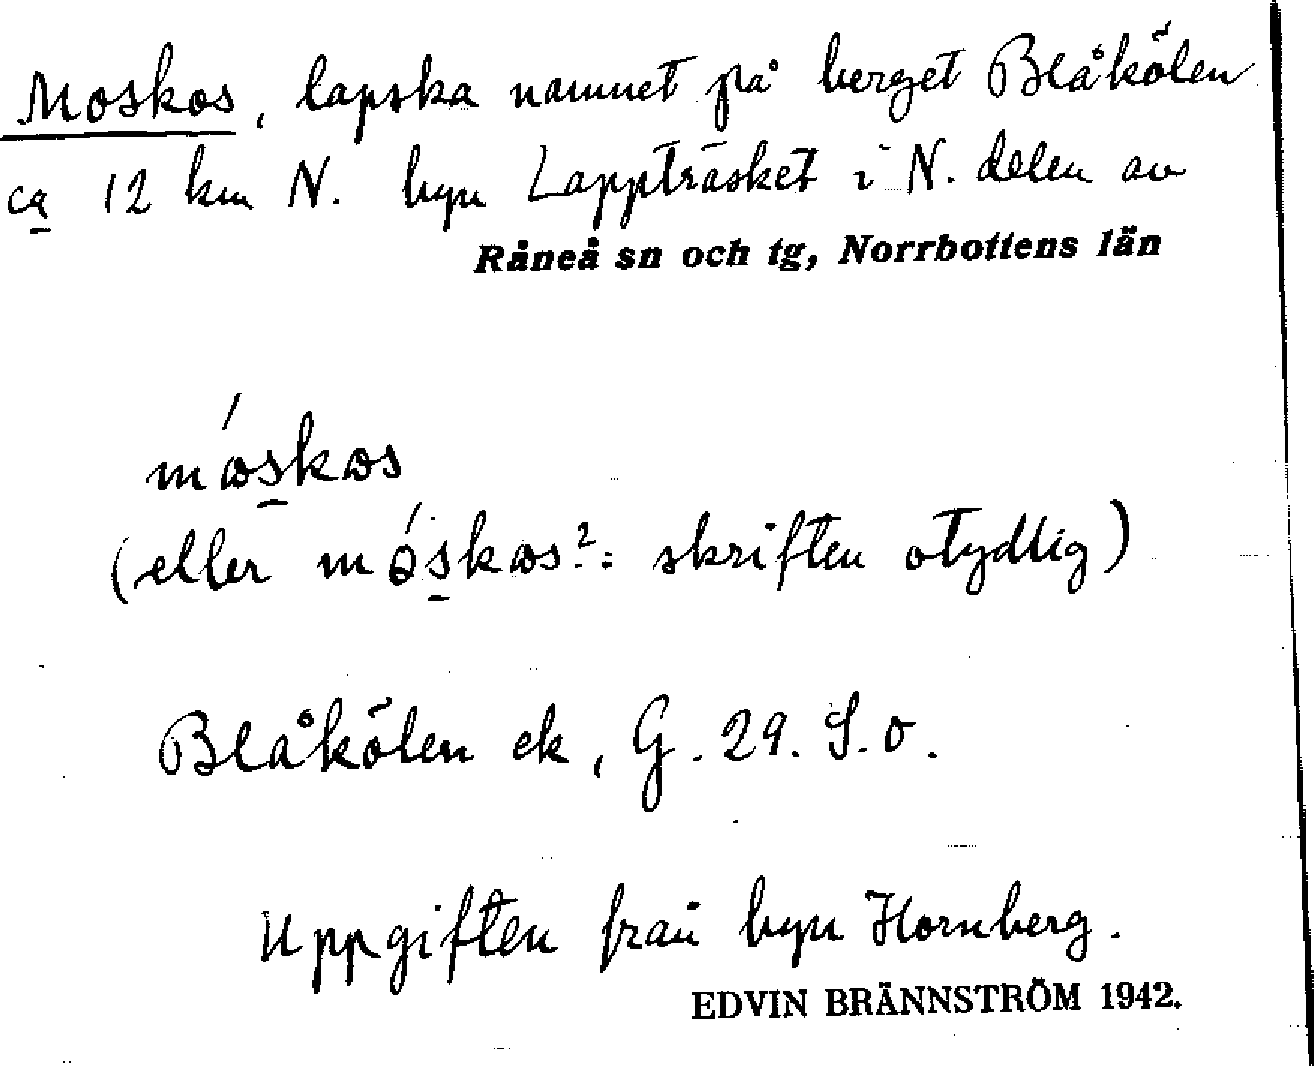 Moskos, lapska namnet på berget Blåkölen
ca 12 km N. byn Lappträsket i N. delen av
Råneå sn och tg, Norrbottens län
móskos
(eller móskos?: skriften otydlig)
Blåkölen ek, G. 29. S.o.
Uppgiften från byn Hornberg.
EDVIN BRÄNNSTRÖM 1942.